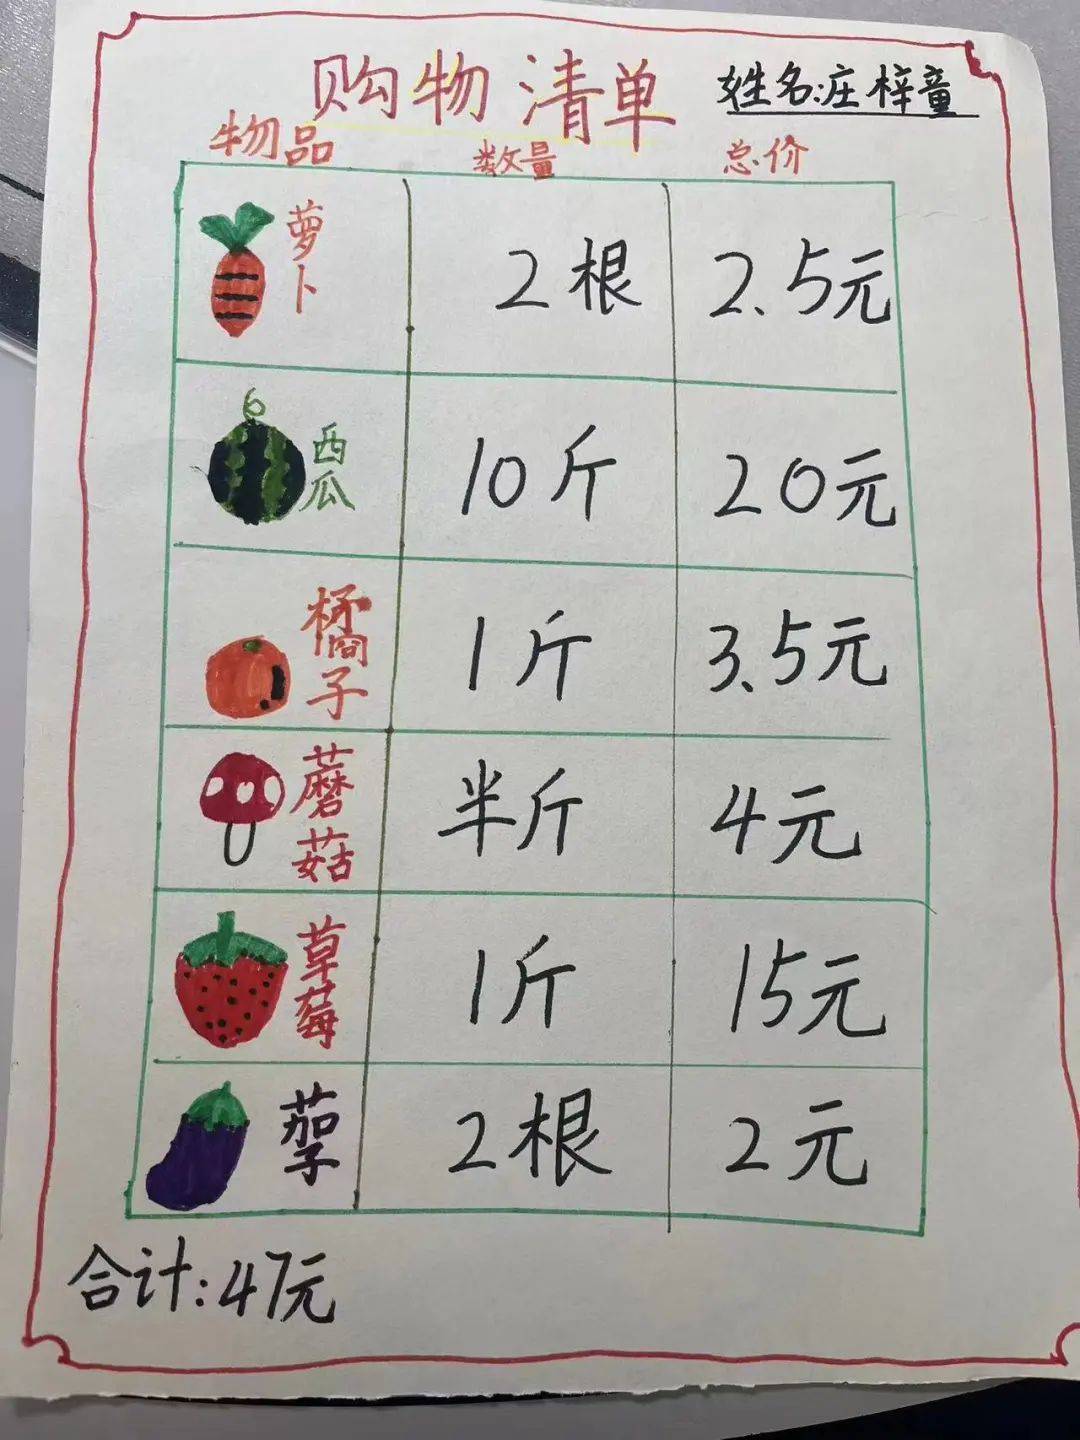 购物清单 姓名:庄梓童
物品 数量 总价
萝卜 2根 2.5元
西瓜 10斤 20元
橘子 1斤 3.5元
蘑菇 半斤 4元
草莓 1斤 15元
茄子 2根 2元
合计:47元